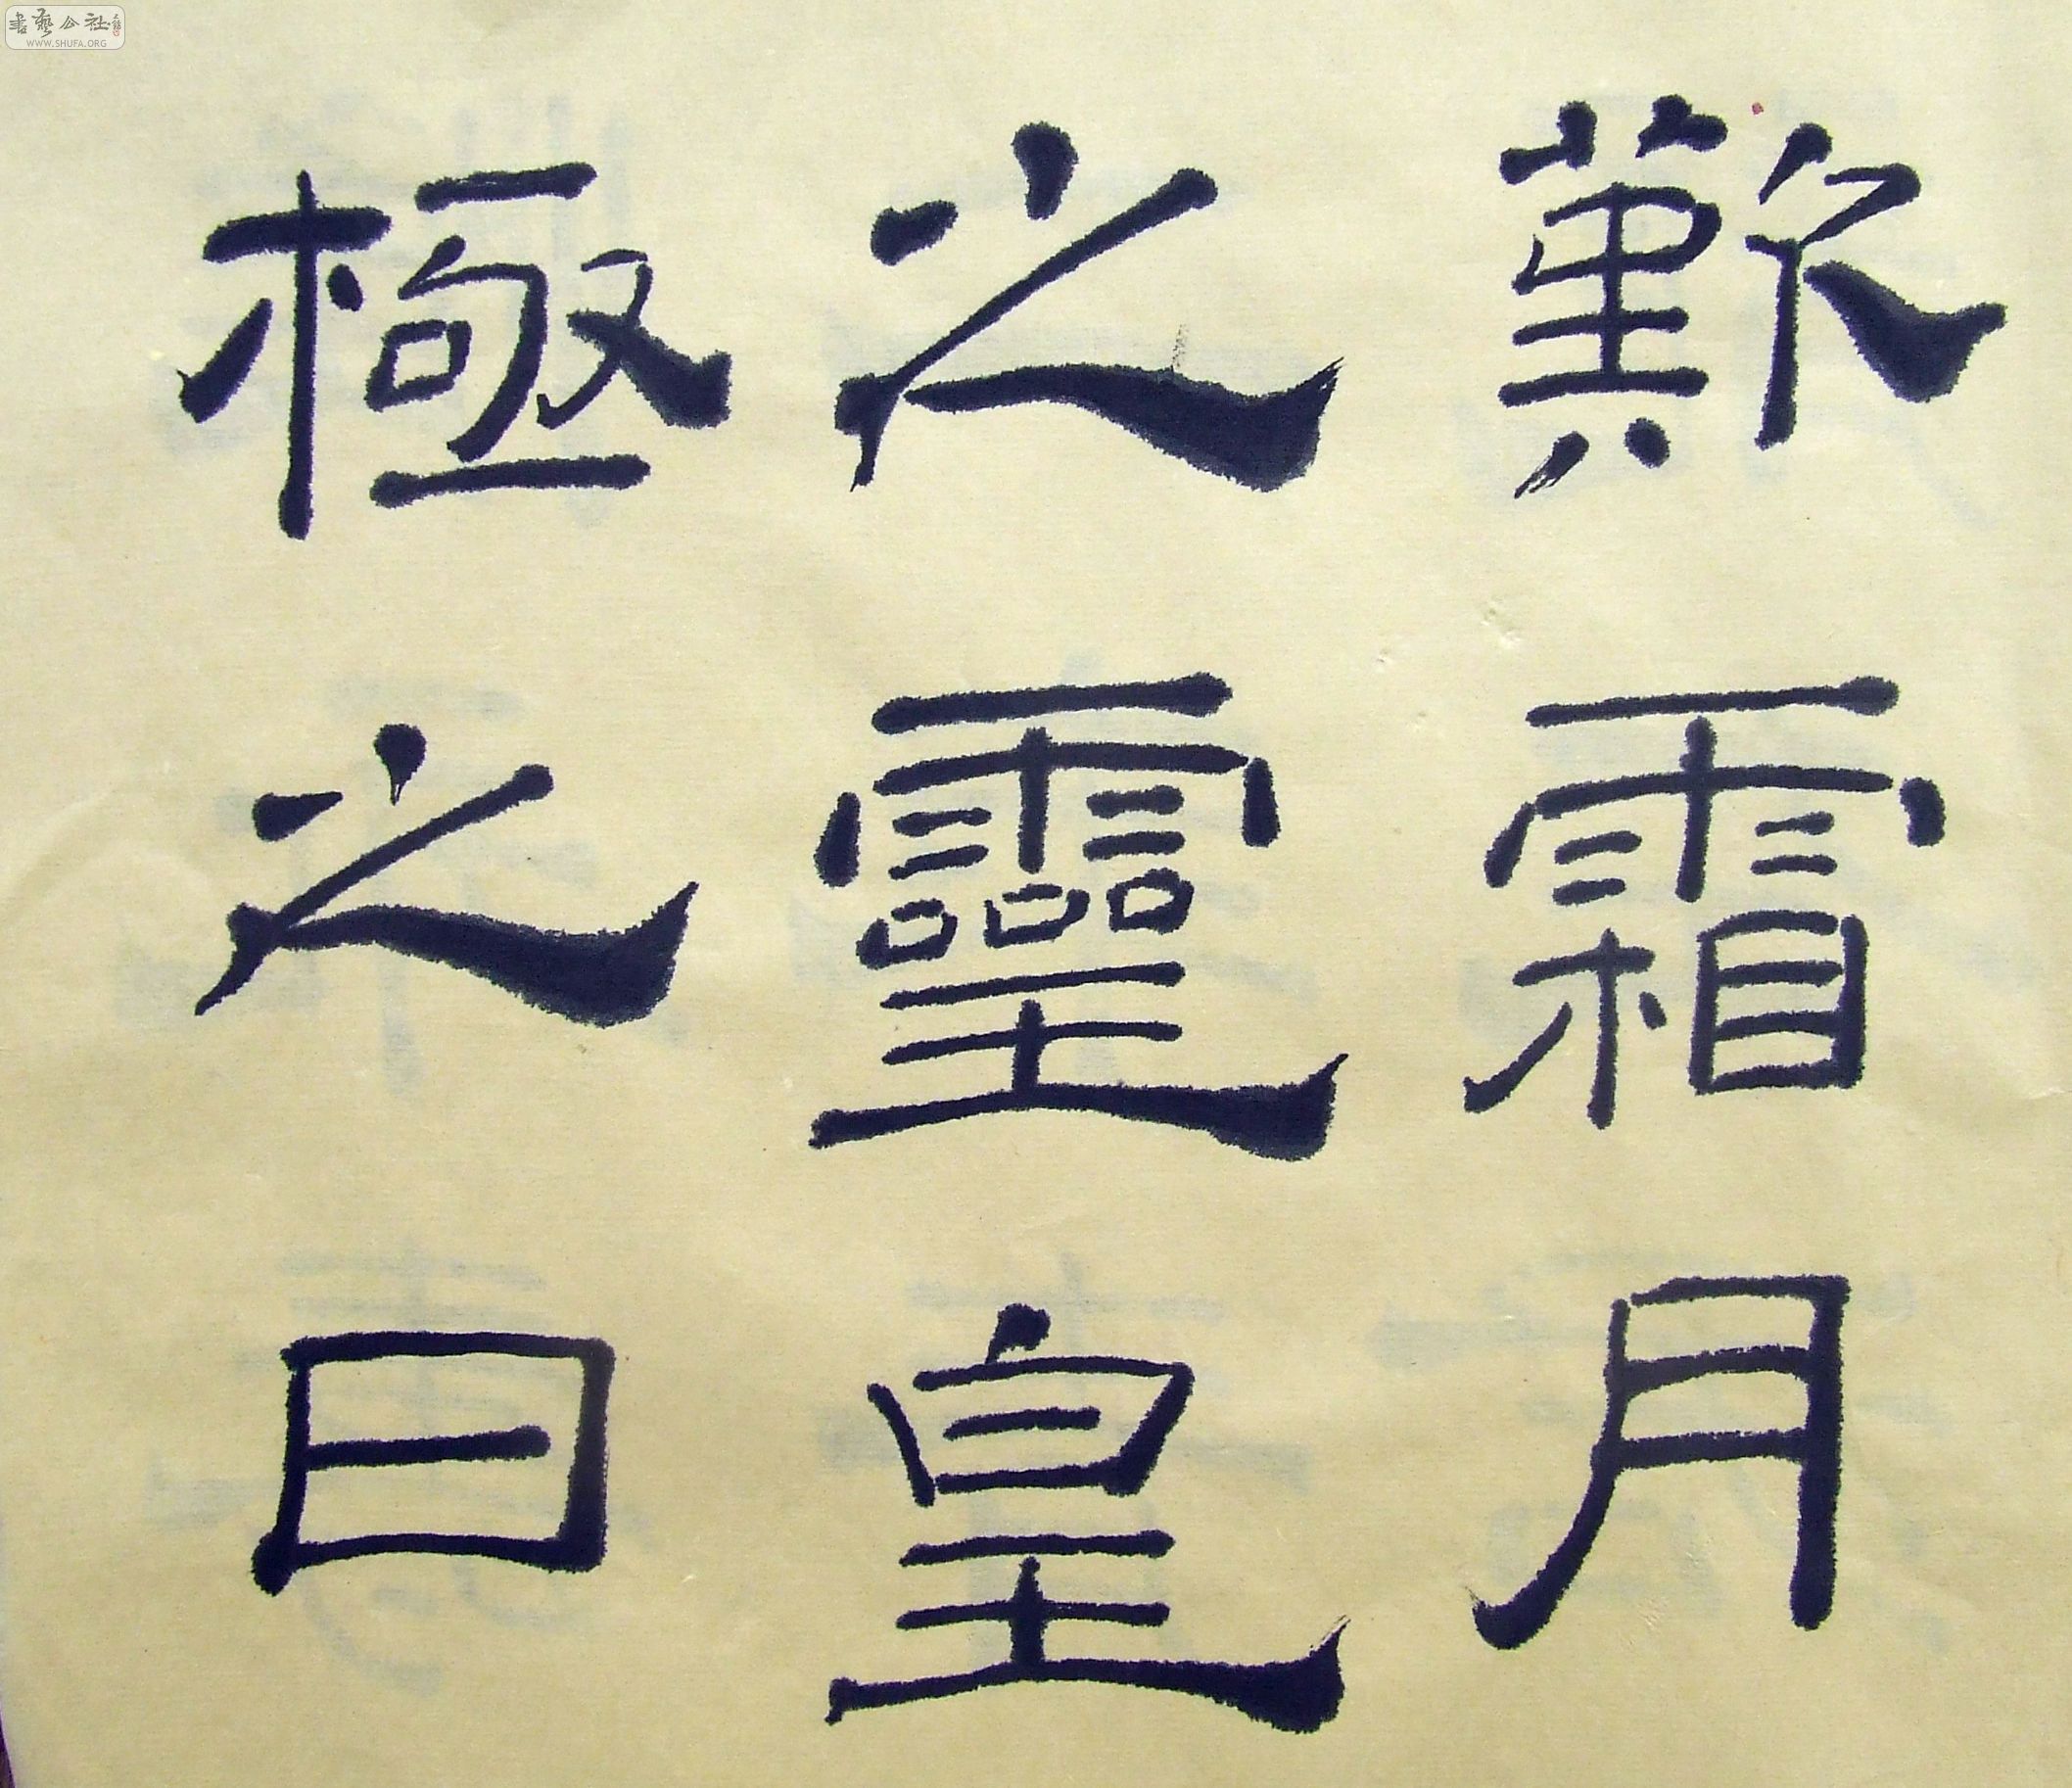 歎霜月
之靈皇
極之日
書藝公社
WWW.SHUFA.ORG